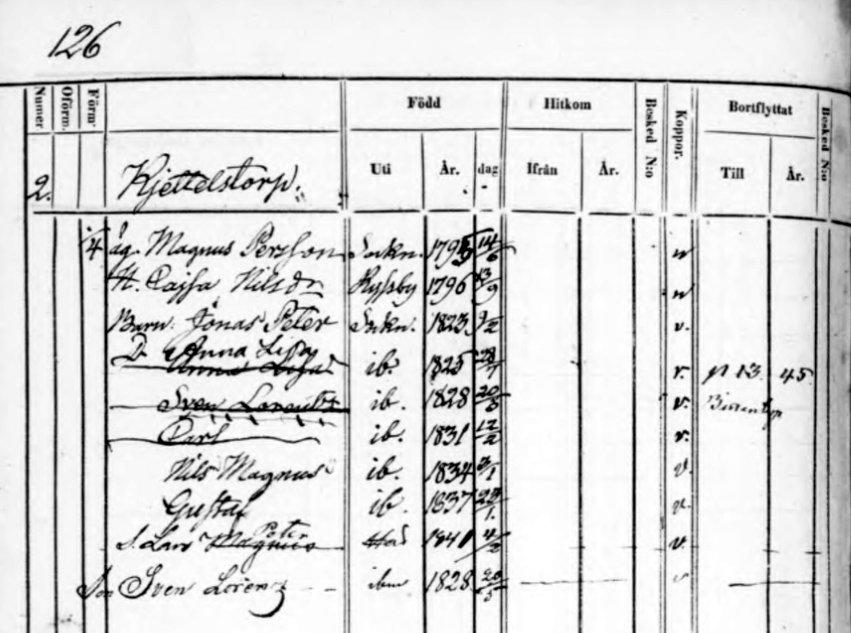 126
Numer Oförm. Förm. Född Hitkom Besked N:o Koppor. Bortflyttat Besked N:o
Uti År. dag Ifrån År. Till År.
2. Kjettelstorp.
1/4 äg. Magnus Persson Sockn. 1795 14/6 v
H. Cajsa Nilsdr Ryssby 1796 13/9 v
Barn. Jonas Peter Sockn. 1823 9/2 v.
D. Anna Lisa
Anna Lisa ib. 1825 28/7 v. p 13. 45.
Sven ib. 1828 20/5 v.
Carl ib. 1831 12/2 v.
Nils Magnus ib. 1834 3/1 v.
Gustaf ib. 1837 29/1. v.
Peter
S. Lars Magnus 1841 4/2 v.
Son Sven Lorenz ibm 1828 20/5 v